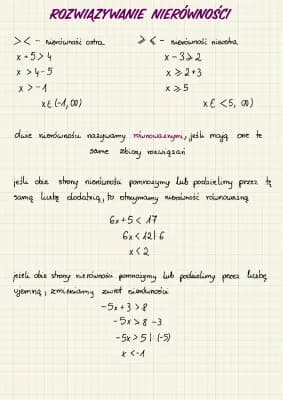 ROZWIĄZYWANIE NIERÓWNOŚCI
> < - nierówność ostra
x + 5 > 4
x > 4 - 5
x > -1
x ∈ (-1, ∞)
⩾ ⩽ - nierówność nieostra
x - 3 ⩾ 2
x ⩾ 2 + 3
x ⩾ 5
x ∈ <5, ∞)
dwie nierówności nazywamy równoważnymi, jeśli mają one te
same zbiory rozwiązań
jeśli obie strony nierówności pomnożymy lub podzielimy przez tę
samą liczbę dodatnią, to otrzymamy nierówność równoważną
6x + 5 < 17
6x < 12 | : 6
x < 2
jeżeli obie strony nierówności pomnożymy lub podzielimy przez liczbę
ujemną, zmieniamy zwrot nierówności
-5x + 3 > 8
-5x > 8 - 3
-5x > 5 | : (-5)
x < -1